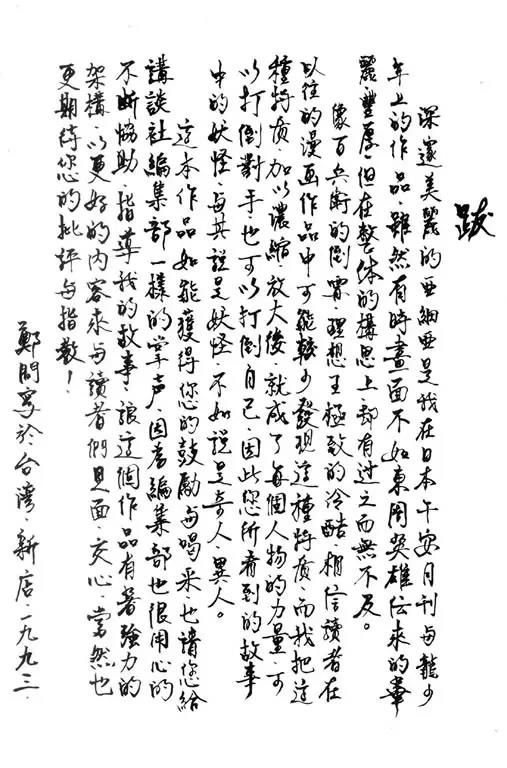 跋
深邃美麗的亜細亜是我在日本午安月刊与龍少
年上的作品，雖然有時畫面不如東周英雄伝来的華
麗豐厚，但在整体的構思上，却有过之而無不及。
像百兵衛的倒霉，理想王極致的冷酷，相信讀者在
以往的漫画作品中可能較少發現這種特质，而我把這
種特质加以濃縮，放大後，就成了每個人物的力量，可
以打倒對手也可以打倒自己，因此您所看到的故事
中的妖怪，与其說是妖怪，不如說是奇人、異人。
這本作品如能獲得您的鼓勵与喝采，也請您給
講談社編集部一樣的掌声，因為編集部也很用心的
不断協助，指導我的故事，讓這個作品有著強力的
架構，以更好的内容来与讀者們見面，交心，當然也
更期待您的批評与指教！
鄭問寫於台灣，新店，一九九三，